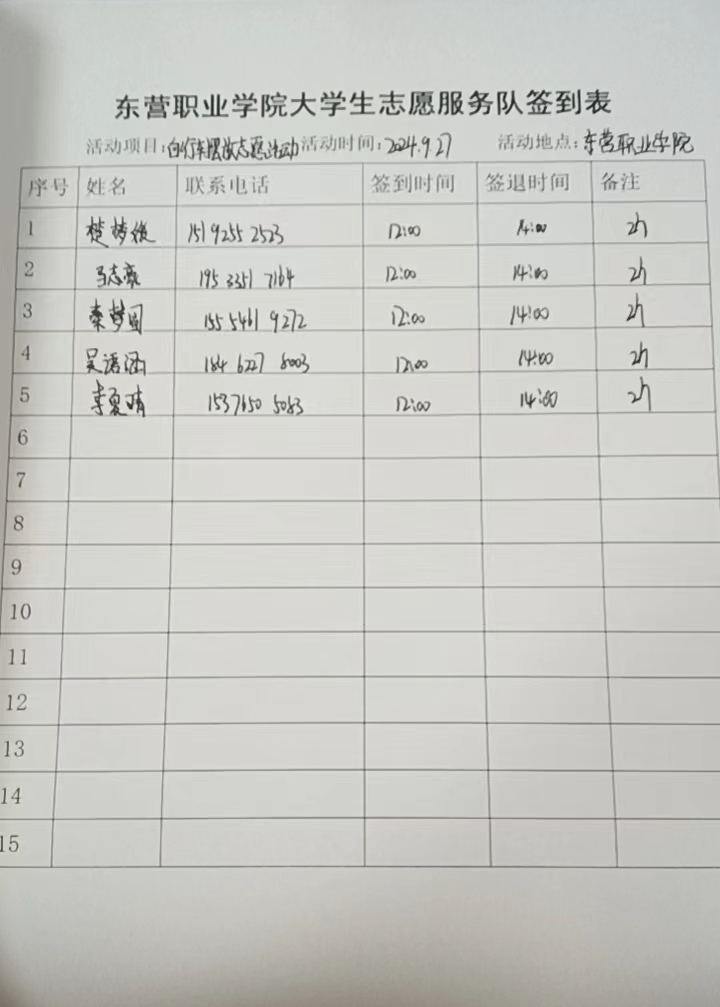 东营职业学院大学生志愿服务队签到表
活动项目:自行车摆放志愿活动 活动时间:2024.9.27 活动地点:东营职业学院
序号 姓名 联系电话 签到时间 签退时间 备注
1 楚梦俊 151 9255 2523 12:00 14:00 2h
2 马志豪 195 3351 7164 12:00 14:00 2h
3 秦梦圆 155 5461 9272 12:00 14:00 2h
4 吴语涵 184 6227 8003 12:00 14:00 2h
5 李夏晴 1537650 5083 12:00 14:00 2h
6
7
8
9
10
11
12
13
14
15